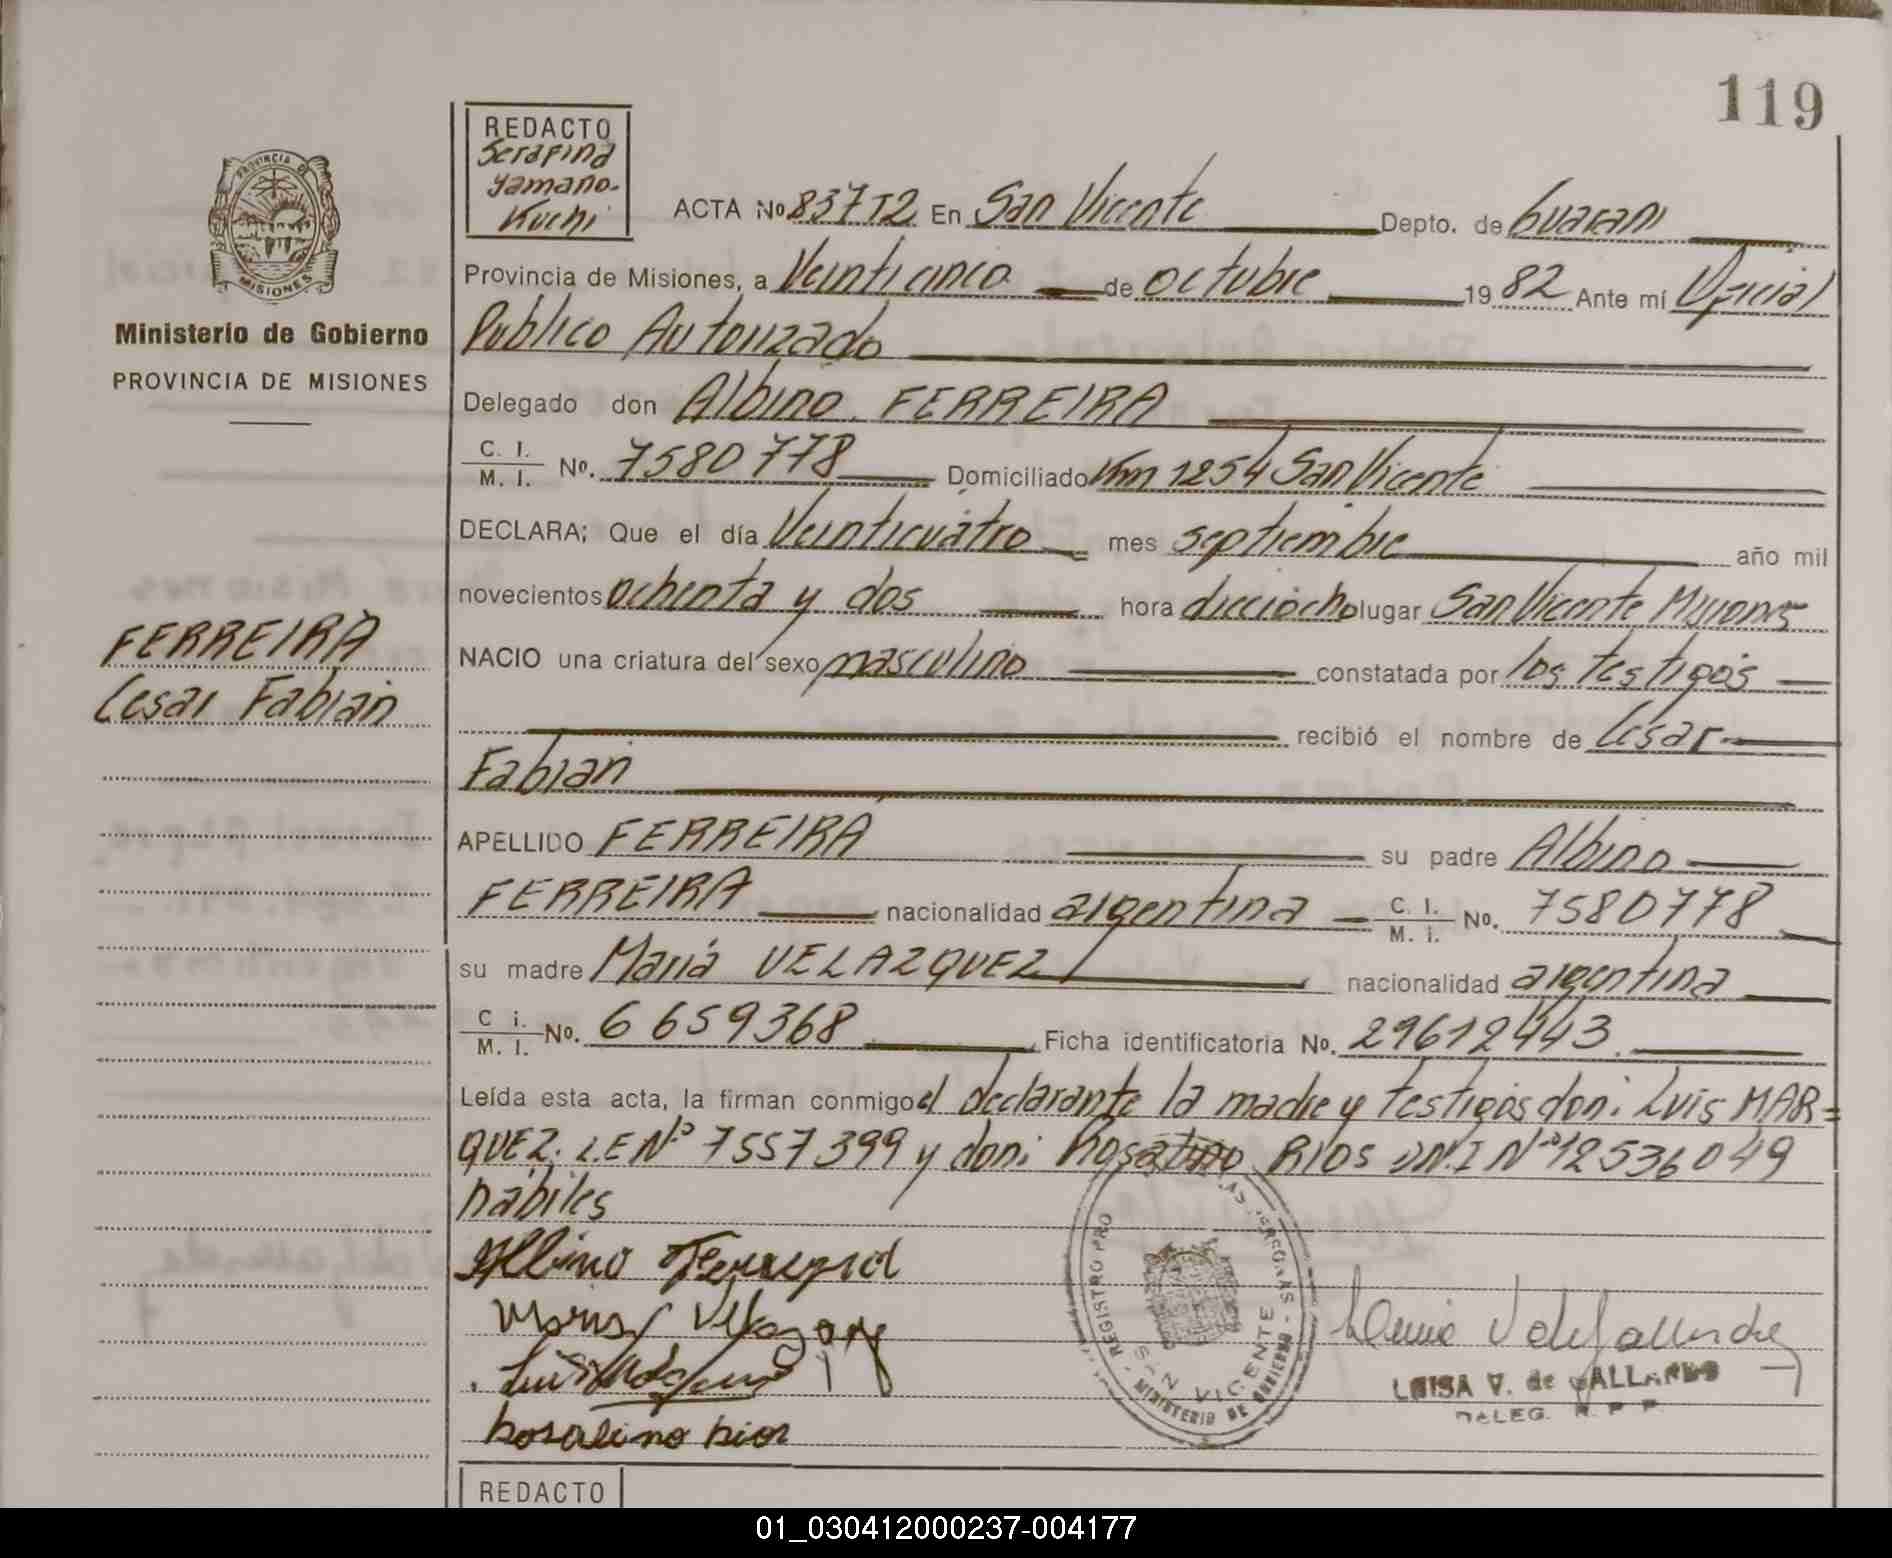 119
REDACTO
Serafina
Yamaño.
Kuchi
ACTA No 837T2 En San Vicente Depto. de Guaraní
Provincia de Misiones, a Veinticinco de octubre 1982 Ante mí Oficial
Publico Autorizado
Delegado don Albino. FERREIRA
C. I.
M. I. No. 7580778 Domiciliado Km 1254 San Vicente
DECLARA; Que el día Veinticuatro mes septiembre año mil
novecientos ochenta y dos hora dieciocho lugar San Vicente Misiones
NACIO una criatura del sexo masculino constatada por los testigos
recibió el nombre de Cesar
Fabian
APELLIDO FERREIRA su padre Albino
FERREIRA nacionalidad argentina C. I. M. i. No. 7580778
su madre María VELAZQUEZ nacionalidad argentina
C i. M. I. No. 6659368 Ficha identificatoria No. 29612443
Leída esta acta, la firman conmigo el declarante la madre y testigos don: Luis MAR=
QUEZ. L.E Nº 7557399 y don: Rosalino RIOS D.N.I Nº 12536049
habiles
Albino Ferreyra
Luis
Rosalino Rios
REGISTRO PRO LAS PERSONAS
SAN VICENTE
MINISTERIO DE GOBIERNO
LUISA V. de GALLARDO
DELEG. R. P. P.
PROVINCIA DE
MISIONES
Ministerio de Gobierno
PROVINCIA DE MISIONES
FERREIRA
Cesar Fabian
REDACTO
01_030412000237-004177